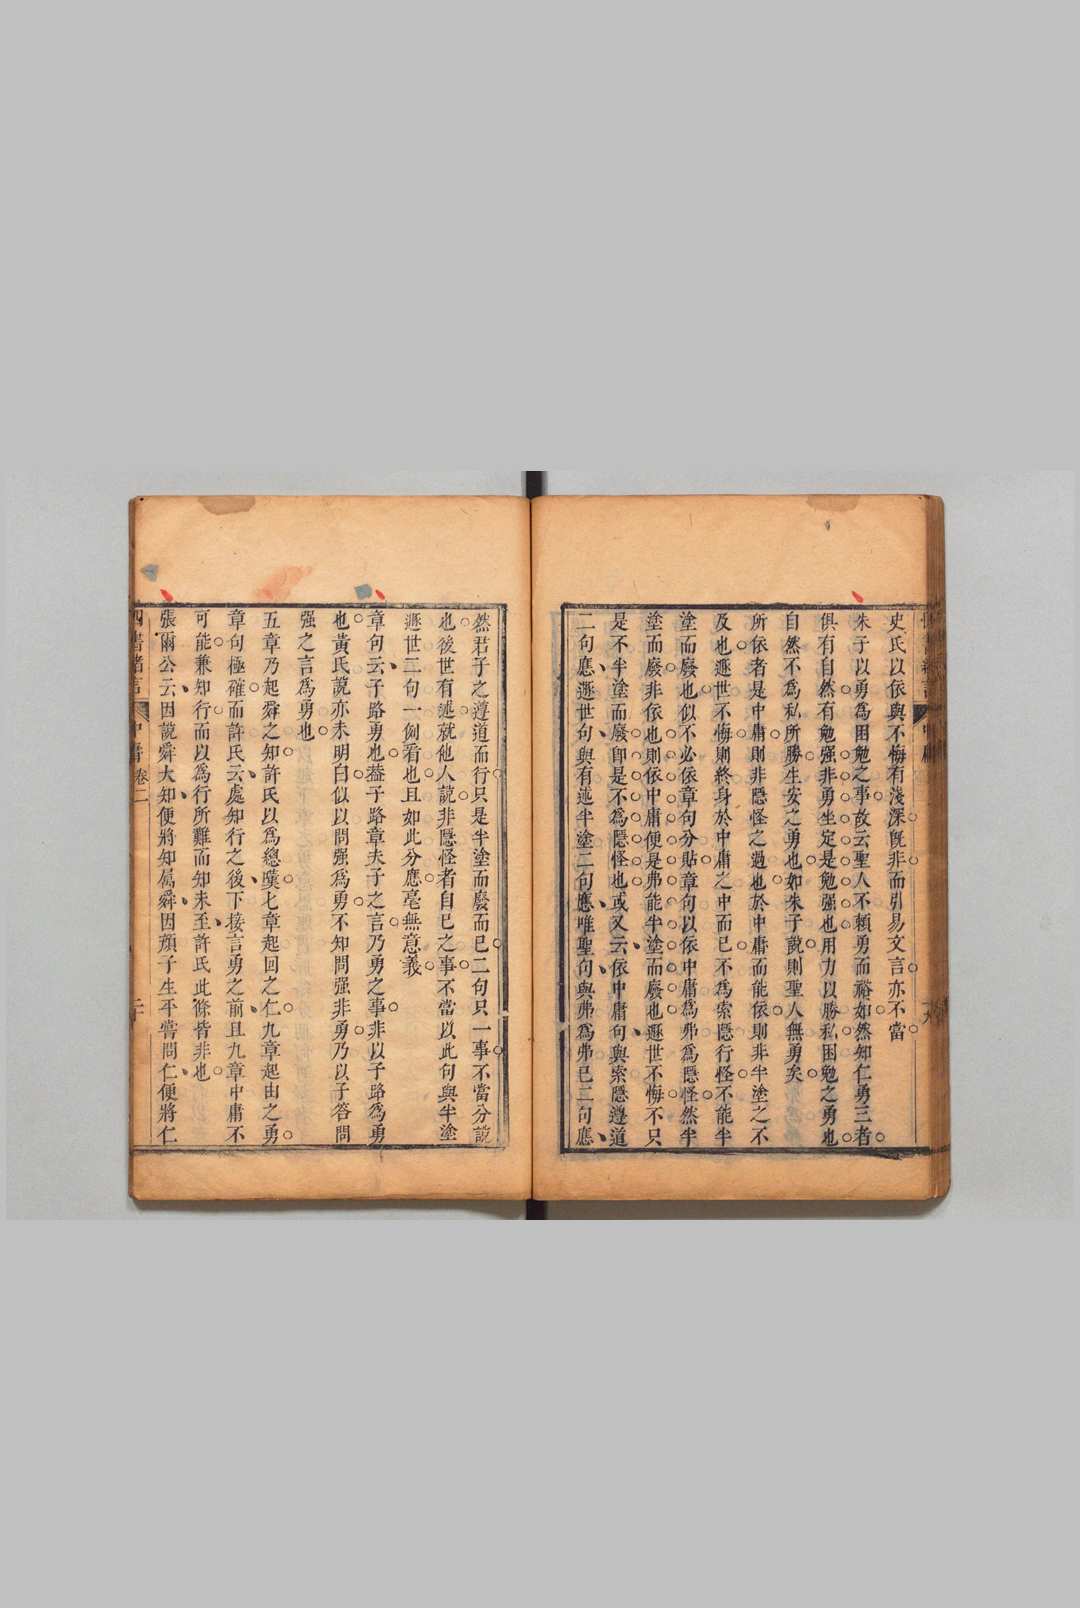 史氏以依與不悔有淺深旣非而引易文言亦不當
朱子以勇爲困勉之事故云聖人不賴勇而裕如然知仁勇三者
俱有自然有勉强非勇生定是勉强也用力以勝私困勉之勇也
自然不爲私所勝生安之勇也如朱子說則聖人無勇矣
所依者是中庸則非隱怪之過也於中庸而能依則非半塗之不
及也遯世不悔則終身於中庸之中而已不爲索隱行怪不能半
塗而廢也似不必依章句分貼章句以依中庸爲弗爲隱怪然半
塗而廢非依也則依中庸便是弗能半塗而廢也遯世不悔不只
是不半塗而廢卽是不爲隱怪也或又云依中庸句與索隱遵道
二句應遯世句與有述半塗二句應唯聖句與弗爲弗已二句應
然君子之遵道而行只是半塗而廢而已二句只一事不當分說
也後世有述就他人說非隱怪者自已之事不當以此句與半塗
遯世二句一例看也且如此分應毫無意義
章句云子路勇也蓋子路章夫子之言乃勇之事非以子路爲勇
也黃氏說亦未明白似以問强爲勇不知問强非勇乃以子答問
强之言爲勇也
五章乃起舜之知許氏以爲總嘆七章起回之仁九章起由之勇
章句極確而許氏云處知行之後下接言勇之前且九章中庸不
可能兼知行而以爲行所難而知未至許氏此條皆非也
張爾公云因說舜大知便將知屬舜因顏子生平嘗問仁便將仁
四書緒言
中庸卷二
二十